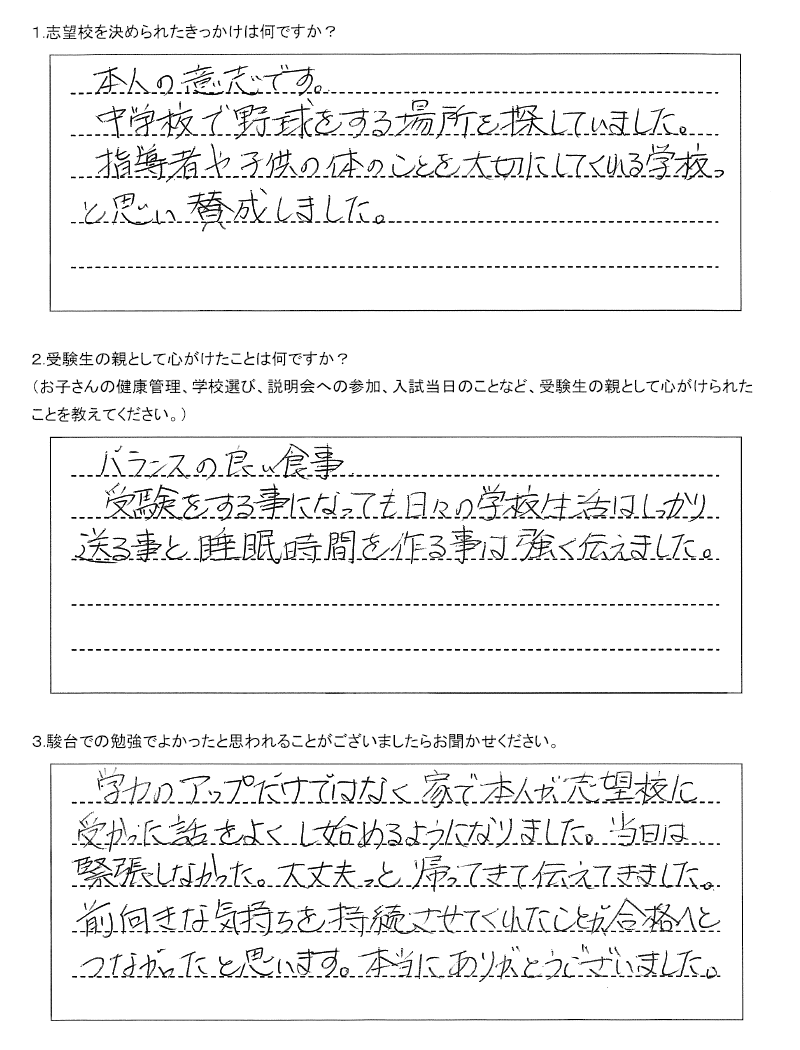 1.志望校を決められたきっかけは何ですか？
本人の意志です。
中学校で野球をする場所を探していました。
指導者や子供の体のことを大切にしてくれる学校っ
と思い賛成しました。
2.受験生の親として心がけたことは何ですか？
（お子さんの健康管理、学校選び、説明会への参加、入試当日のことなど、受験生の親として心がけられた
ことを教えてください。）
バランスの良い食事
受験をする事になっても日々の学校生活はしっかり
送る事と睡眠時間を作る事は強く伝えました。
3.駿台での勉強でよかったと思われることがございましたらお聞かせください。
学力のアップだけではなく家で本人が志望校に
受かった話をよくし始めるようになりました。当日は
緊張しなかった。大丈夫っと帰ってきて伝えてきました。
前向きな気持ちを持続させてくれたことが合格へと
つながったと思います。本当にありがとうございました。